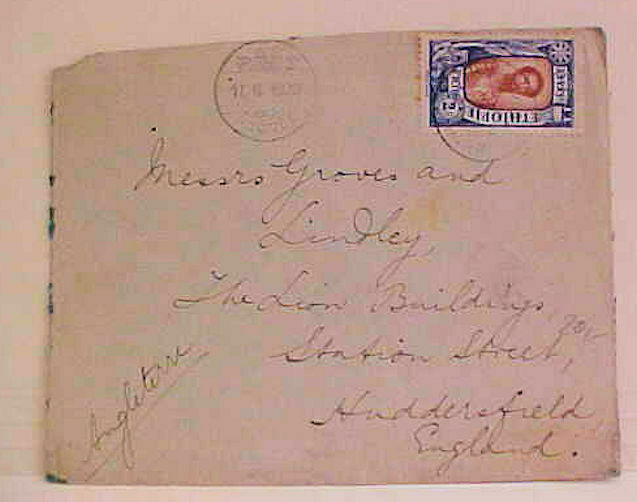 ETHIOPIE
Messrs Groves and
Lindley,
The Lion Buildings,
Station Street,
Huddersfield
England.
Angleterre